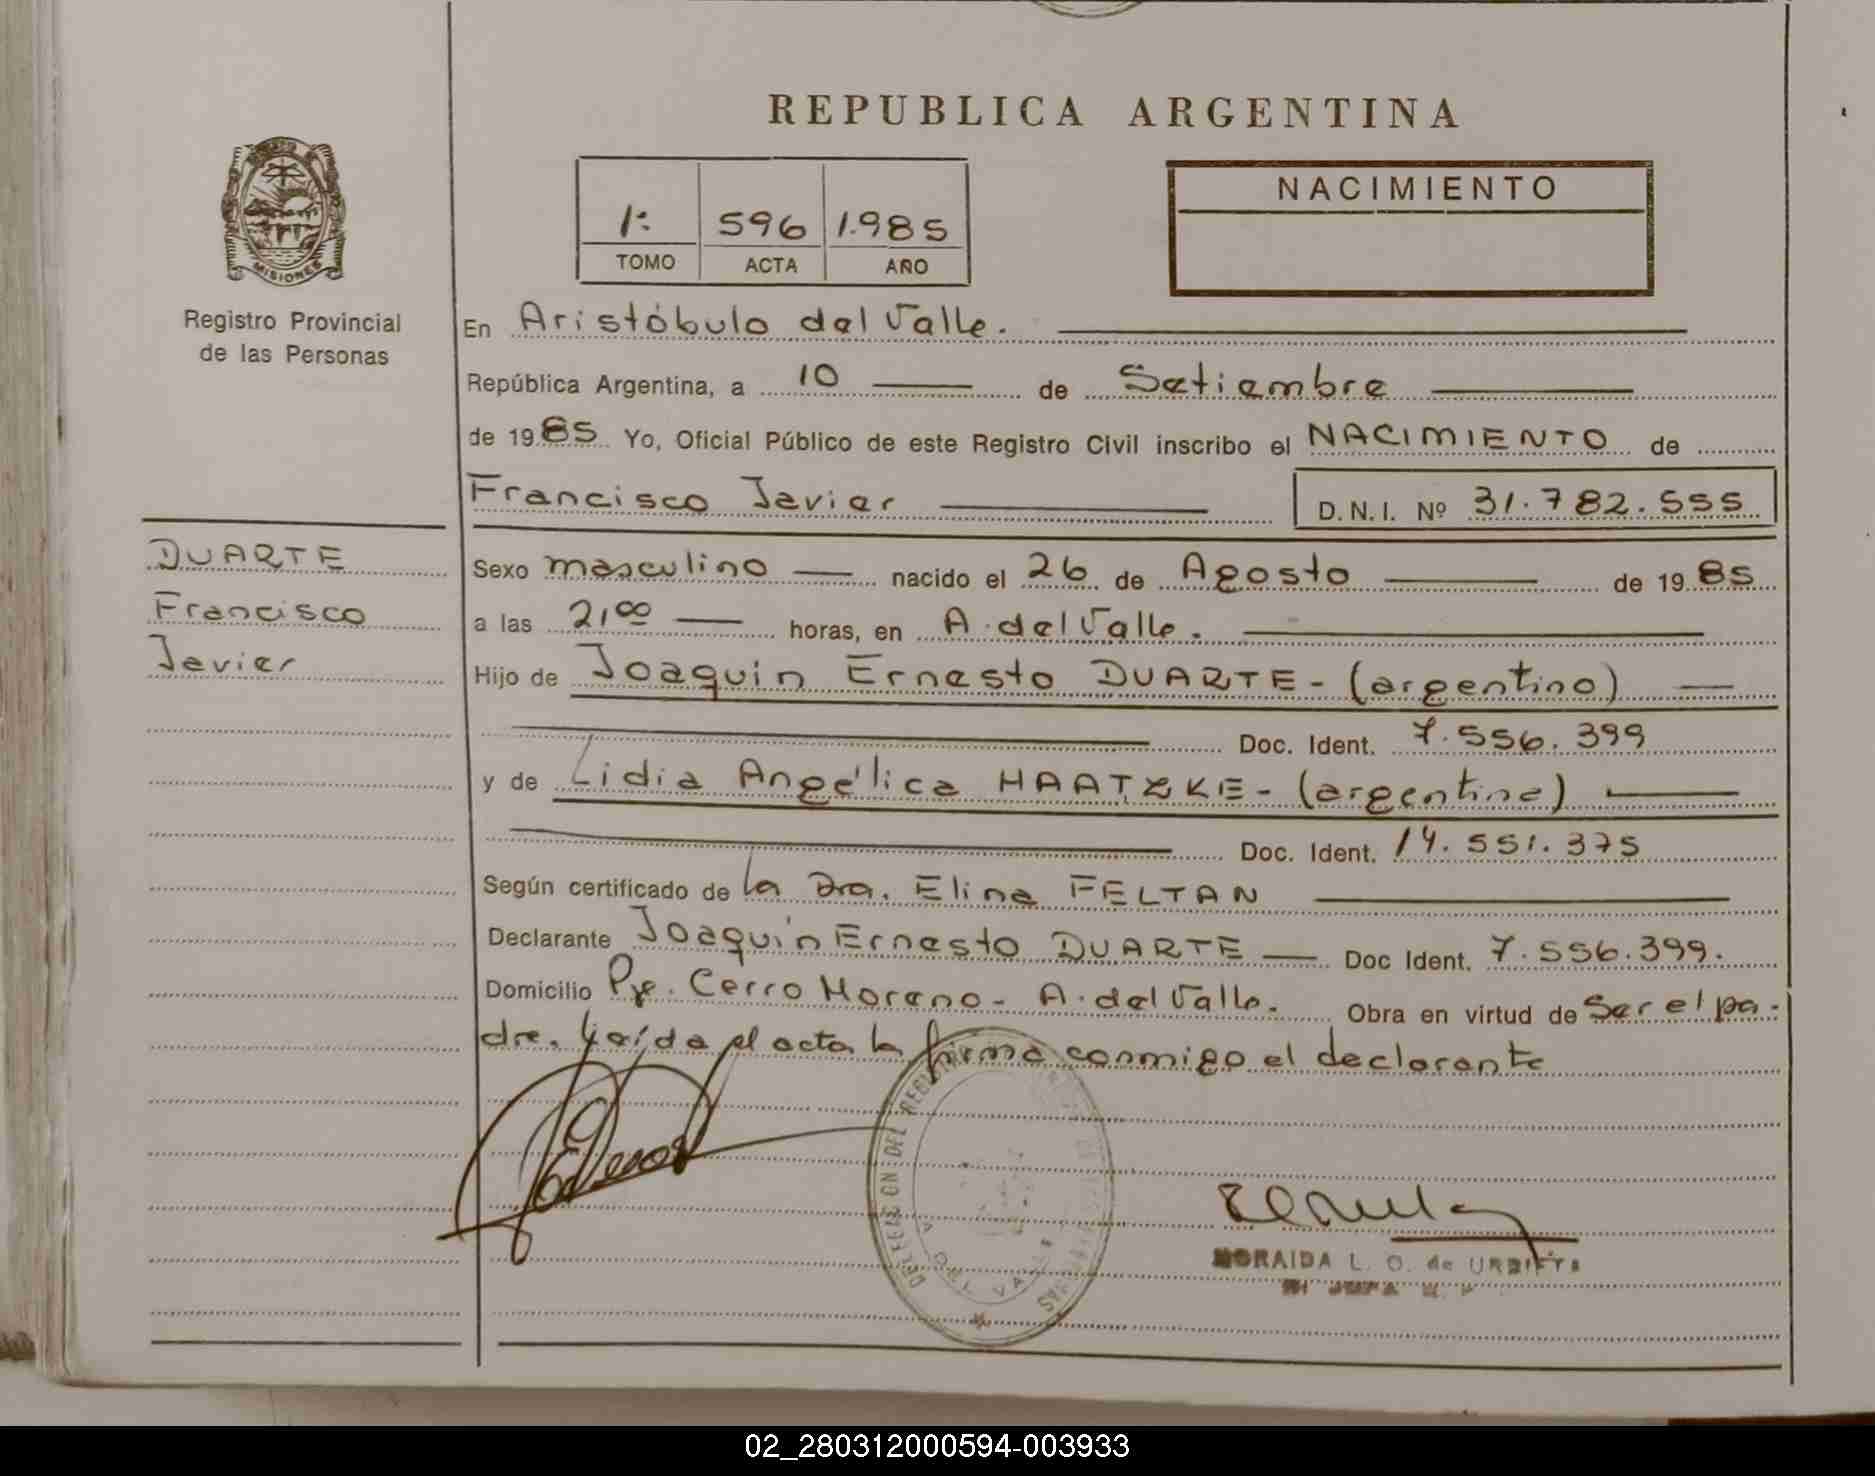 REPUBLICA ARGENTINA
MISIONES
Registro Provincial
de las Personas
1: 596 1.985
TOMO ACTA AÑO
NACIMIENTO
En Aristóbulo del Valle.
República Argentina, a 10 de Setiembre
de 1985 Yo, Oficial Público de este Registro Civil inscribo el NACIMIENTO de
Francisco Javier D.N.I. Nº 31.782.555
DUARTE
Francisco
Javier
Sexo masculino nacido el 26 de Agosto de 1985
a las 21,00 horas, en A. del Valle.
Hijo de Joaquin Ernesto DUARTE - (argentino)
Doc. Ident. 7.556.399
y de Lidia Angélica HAATZKE - (argentina)
Doc. Ident. 14.551.375
Según certificado de la Dra. Elina FELTAN
Declarante Joaquin Ernesto DUARTE Doc Ident. 7.556.399.
Domicilio Pje. Cerro Moreno - A. del Valle. Obra en virtud de Ser el pa-
dre. Leída el acta la firma conmigo el declarante
DELEGACION DEL
A. DEL VALLE
MORAIDA L. O. de
02_280312000594-003933